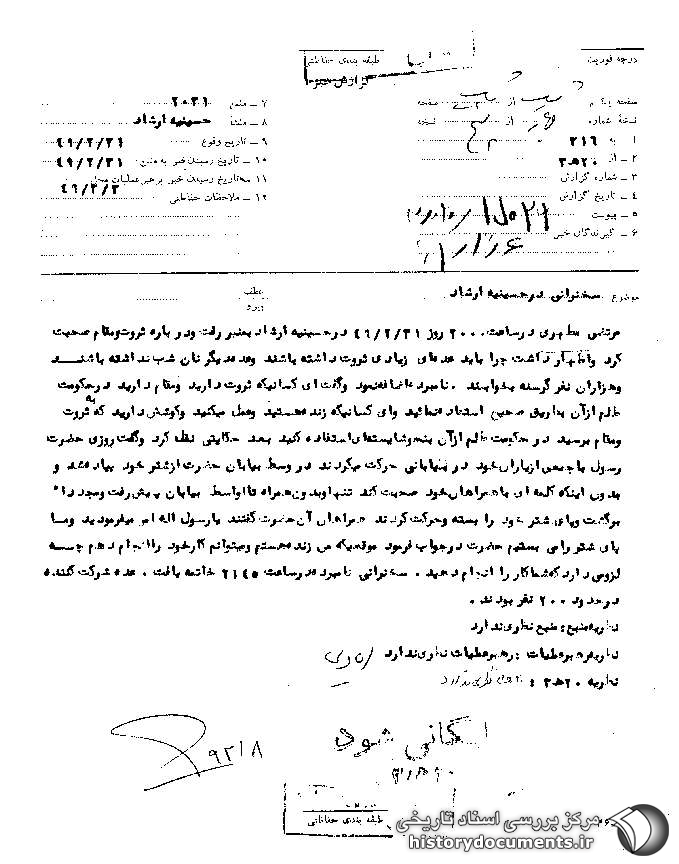 درجه فوریت
طبقه بندی حفاظتی
گزارش خبر
صفحه یکم از صفحه
نسخهٔ شماره از نسخه
۱ ـ به ۳۱۶
۲ ـ از ۲۰ ه‍ ۳
۳ ـ شماره گزارش
۴ ـ تاریخ گزارش
۵ ـ پیوست
۶ ـ گیرندگان خبر
۷ ـ منبع ۲۰۳۱
۸ ـ منشأ حسینیه ارشاد
۹ ـ تاریخ وقوع ۴۹/۲/۳۱
۱۰ ـ تاریخ رسیدن خبر به منبع ۴۹/۲/۳۱
۱۱ ـ تاریخ رسیدن خبر برهبر عملیات محل ۴۹/۳/۲
۱۲ ـ ملاحظات حفاظتی
موضوع: سخنرانی در حسینیه ارشاد
عطف
پیرو
مرتضی مطهری در ساعت ۲۰۰۰ روز ۴۹/۲/۳۱ در حسینیه ارشاد بمنبر رفت ودر باره ثروت ومقام صحبت
کرد واظهار داشت چرا باید عده‌ای زیادی ثروت داشته باشند وعده دیگر نان شب نداشته باشند
وهزاران نفر گرسنه بخوابند . نامبرده اضافه نمود وگفت ای کسانیکه ثروت دارید ومقام دارید در حکومت
ظلم از آن بطریق صحیح استفاده نمائید وای کسانیکه زنده هستید وعمل میکنید وکوشش دارید که به ثروت
ومقام برسید در حکومت ظلم از آن بنحو شایسته‌ای استفاده کنید بعد حکایتی نقل کرد وگفت روزی حضرت
رسول با جمعی از یاران خود در بیابانی حرکت میکردند در وسط بیابان حضرت از شتر خود پیاده شد و
بدون اینکه کلمه ای با همراهان خود صحبت کند تنها وبدون همراه تا اواسط بیابان پیش رفت ومجددا"
برگشت وپای شتر خود را بسته وحرکت کردند همراهان آن حضرت گفتند یارسول اله امر میفرمودید وما
پای شتر را می بستیم حضرت در جواب فرمود موقعیکه من زنده هستم ومیتوانم کار خود را انجام دهم چه
لزومی دارد که شما کار را انجام دهید . سخنرانی نامبرده در ساعت ۲۱۴۵ خاتمه یافت . عده شرکت کننده
در حدود ۲۰۰ نفر بودند .
نظریه منبع : منبع نظری ندارد
نظریه رهبر عملیات : رهبر عملیات نظری ندارد
نظریه ۲۰ ه‍ ۳ : نظری ندارد
بایگانی شود
۹۲۱۸
طبقه بندی حفاظتی
مرکز بررسی اسناد تاریخی
historydocuments.ir